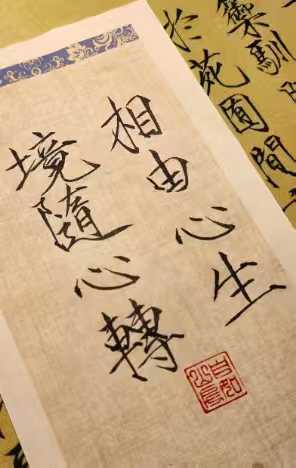 相由心生
境隨心轉
於苑囿間